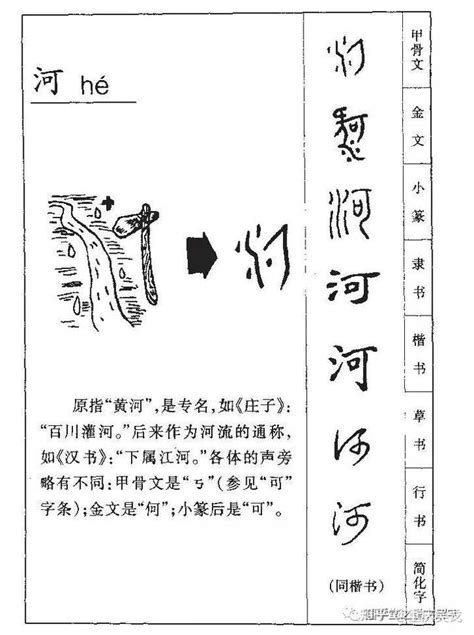 河 hé
原指“黄河”，是专名，如《庄子》：
“百川灌河。”后来作为河流的通称，
如《汉书》：“下属江河。”各体的声旁
略有不同：甲骨文是“ㄎ”（参见“可”
字条）；金文是“何”；小篆后是“可”。
河
河
河
河
河
(同楷书)
甲骨文
金文
小篆
隶书
楷书
草书
行书
简化字